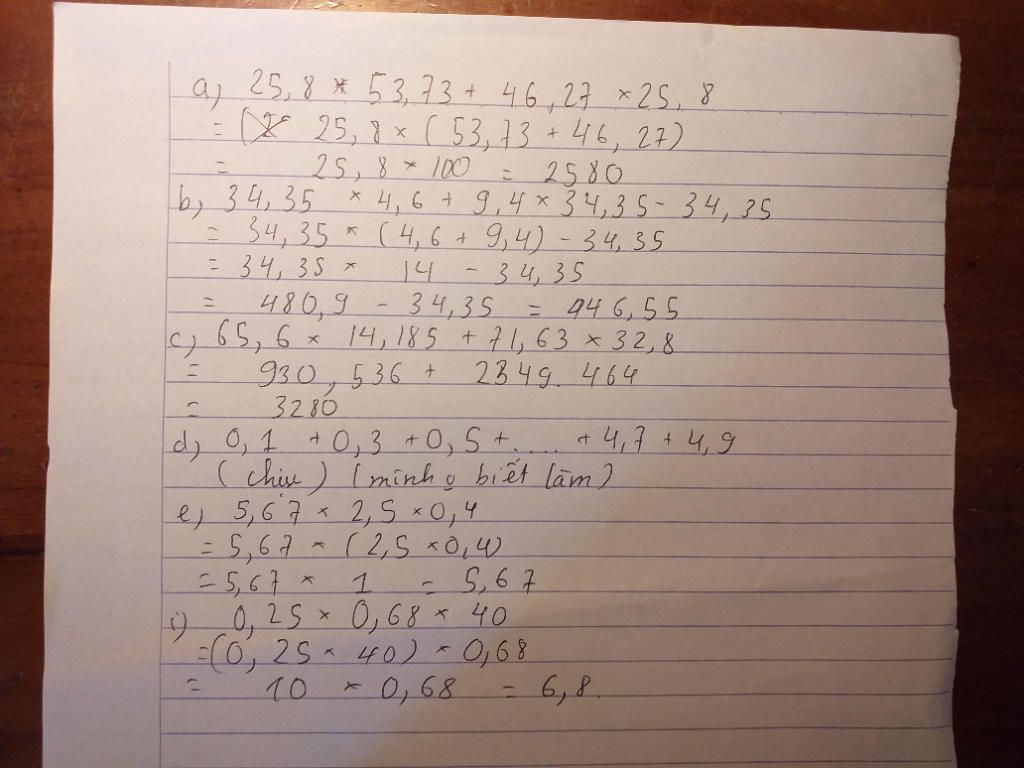 a) 25,8 × 53,73 + 46,27 × 25,8
= ( 25,8 × (53,73 + 46,27)
= 25,8 × 100 = 2580
b) 34,35 × 4,6 + 9,4 × 34,35 - 34,35
= 34,35 × (4,6 + 9,4) - 34,35
= 34,35 × 14 - 34,35
= 480,9 - 34,35 = 446,55
c) 65,6 × 14,185 + 71,63 × 32,8
= 930,536 + 2349.464
= 3280
d) 0,1 + 0,3 + 0,5 + .... + 4,7 + 4,9
(chịu) (mình o biết làm)
e) 5,67 × 2,5 × 0,4
= 5,67 × (2,5 × 0,4)
= 5,67 × 1 = 5,67
i) 0,25 × 0,68 × 40
= (0,25 × 40) × 0,68
= 10 × 0,68 = 6,8.